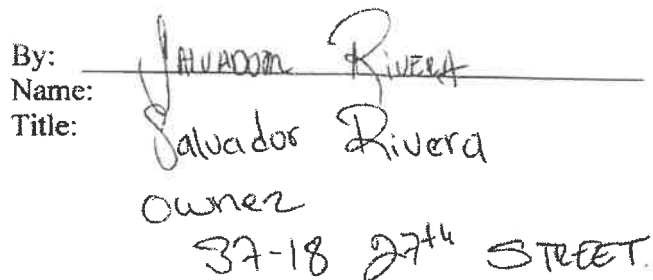 By: Salvador Rivera
Name:
Title: Salvador Rivera
Owner
37-18 27th STREET